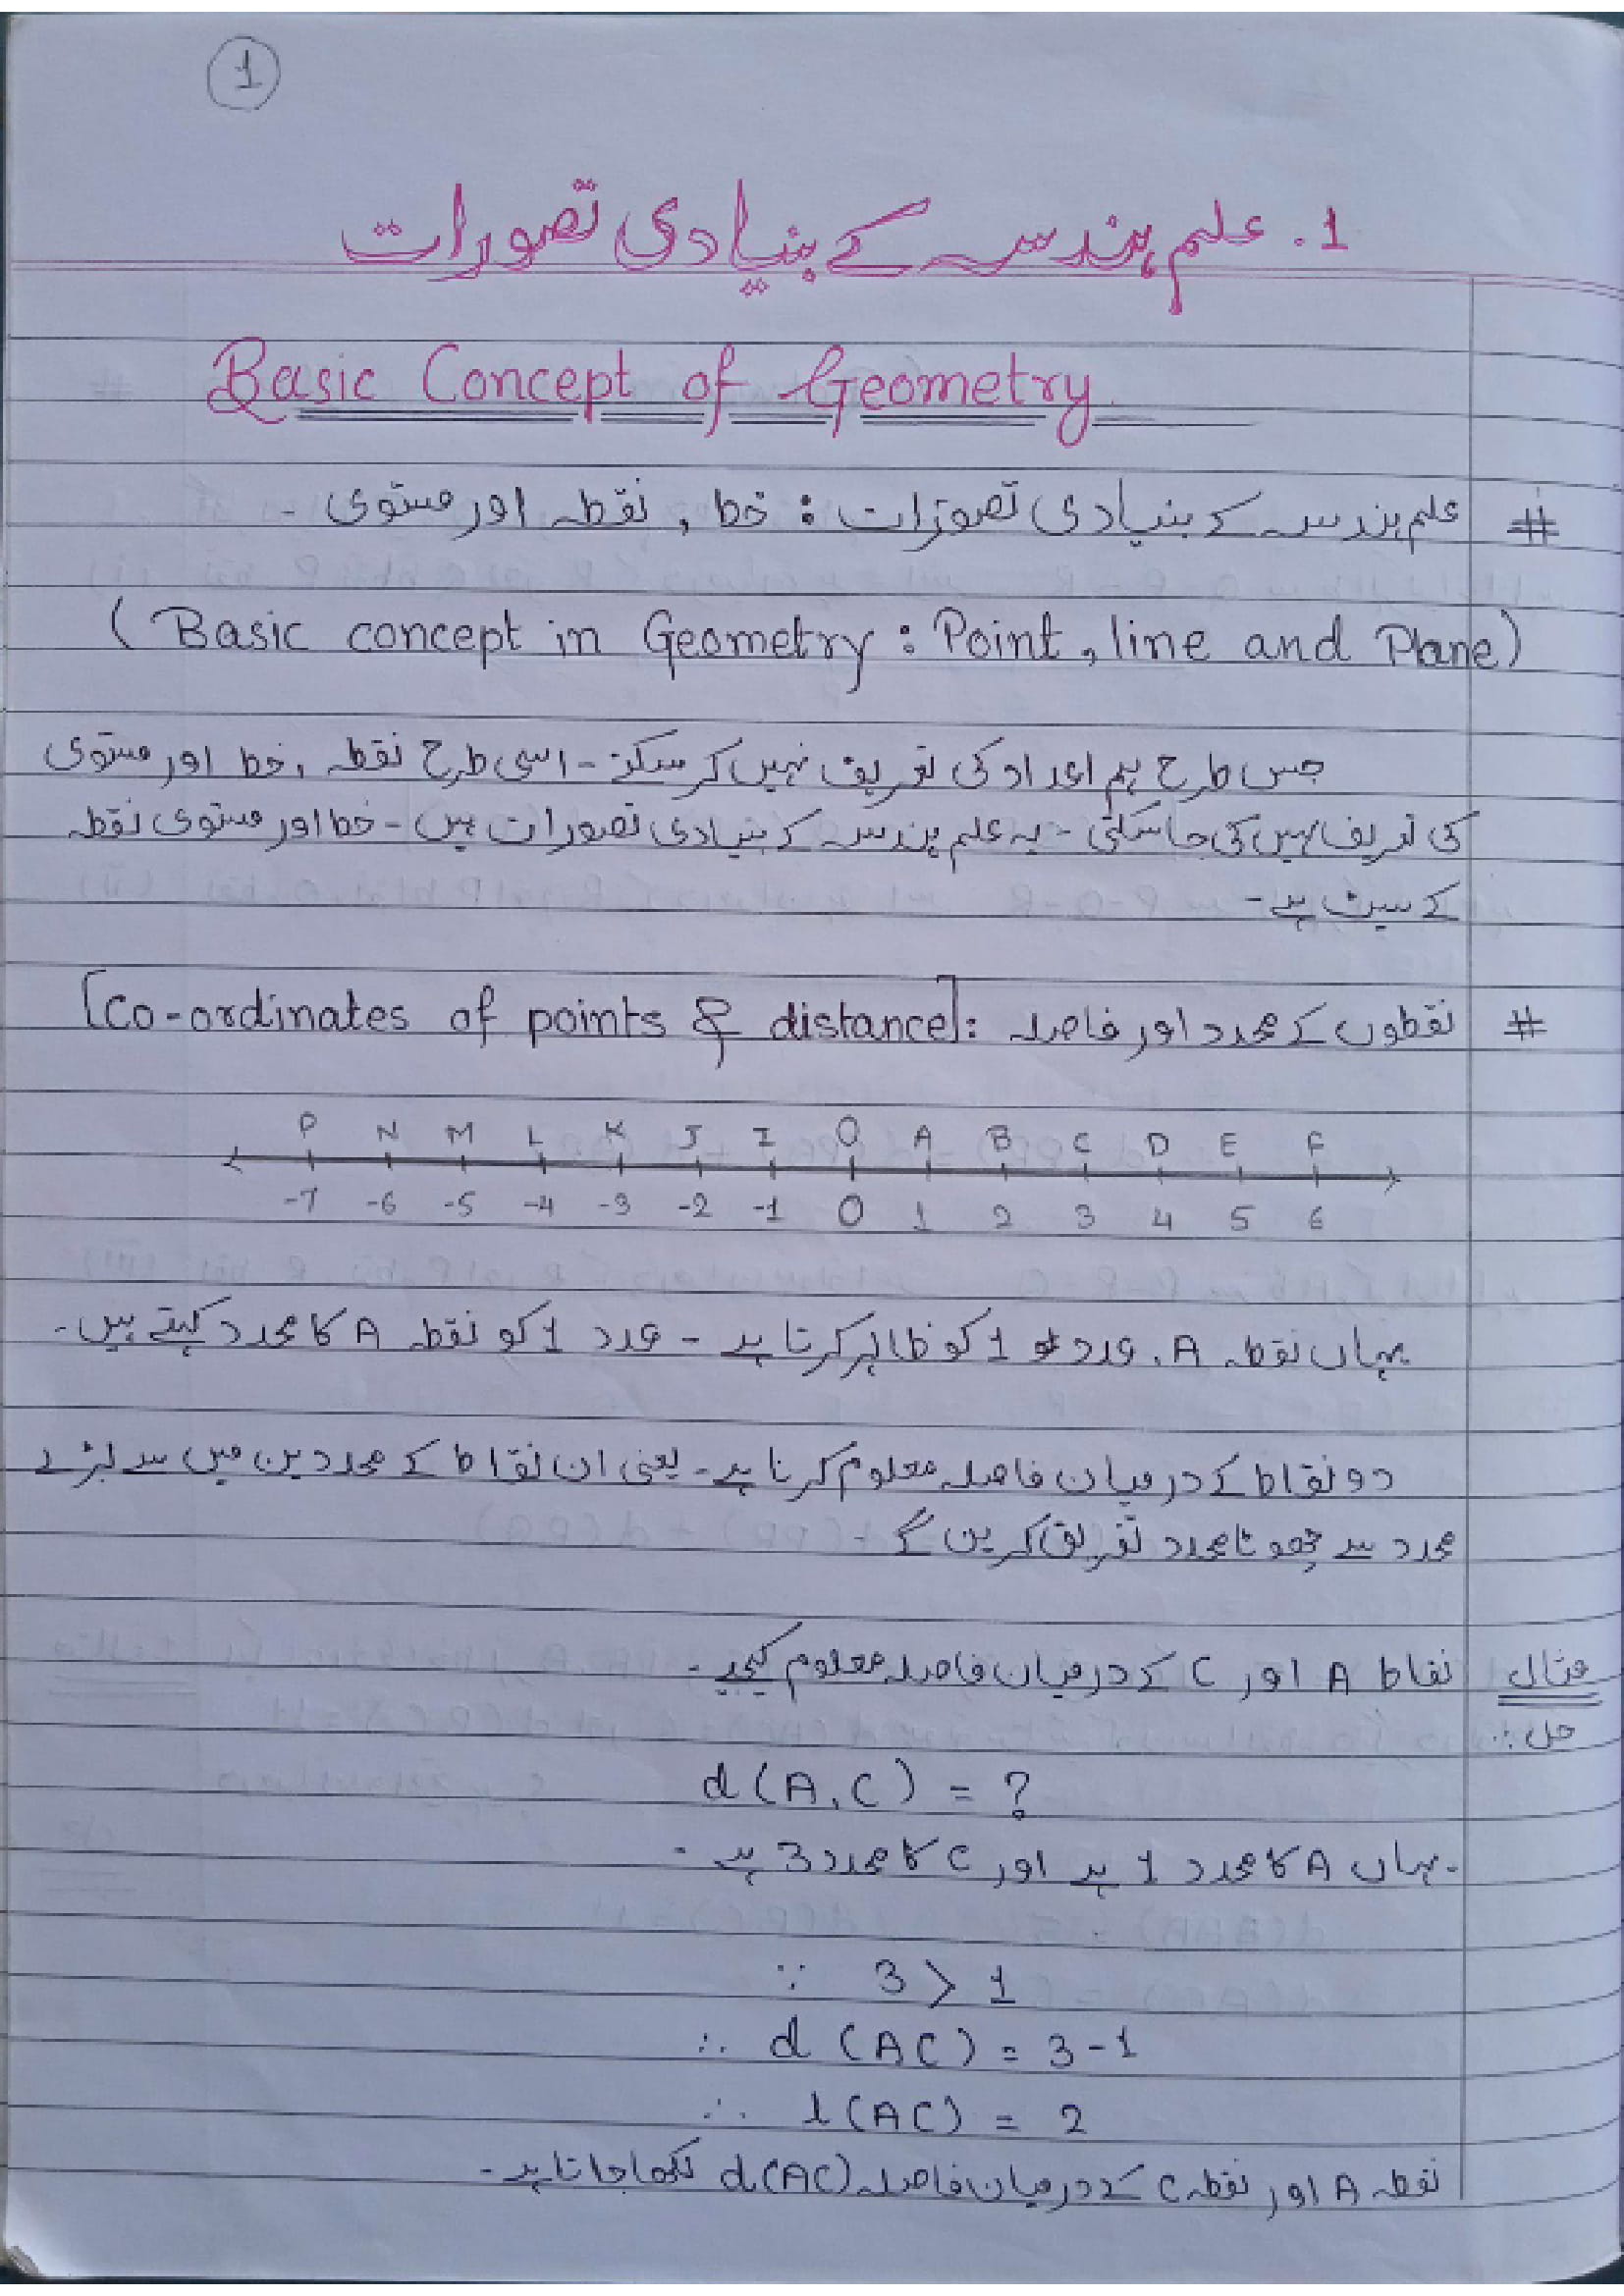 1
1. علم ہندسہ کے بنیادی تصورات
Basic Concept of Geometry
# علم ہندسہ کے بنیادی تصورات : خط , نقطہ اور مستوی -
( Basic concept in Geometry : Point , line and Plane )
جس طرح ہم اعداد کی تعریف نہیں کر سکتے - اسی طرح نقطہ ، خط اور مستوی
کی تعریف نہیں کی جا سکتی - یہ علم ہندسہ کے بنیادی تصورات ہیں - خط اور مستوی نقطہ
کے سیٹ ہے -
# نقطوں کے محدد اور فاصلہ :[Co-ordinates of points & distance]
P N M L K J I O A B C D E F
-7 -6 -5 -4 -3 -2 -1 0 1 2 3 4 5 6
یہاں نقطہ A ، عدد 1 کو ظاہر کرتا ہے - عدد 1 کو نقطہ A کا محدد کہتے ہیں -
دو نقاط کے درمیان فاصلہ معلوم کرنا ہے - یعنی ان نقاط کے محددین میں سے بڑے
محدد سے چھوٹا محدد تفریق کریں گے -
مثال نقاط A اور C کے درمیان فاصلہ معلوم کیجیے -
حل :
d(A,C) = ?
یہاں A کا محدد 1 ہے اور C کا محدد 3 ہے -
∵ 3 > 1
∴ d (AC) = 3-1
∴ l(AC) = 2
نقطہ A اور نقطہ C کے درمیان فاصلہ d(AC) لکھا جاتا ہے -